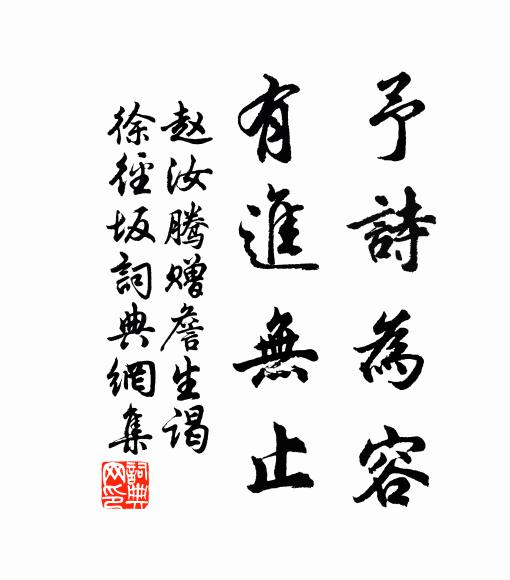 予詩為容
有進無止
赵汝腾赠詹生谒
徐径坂詞典網集
詞典网印